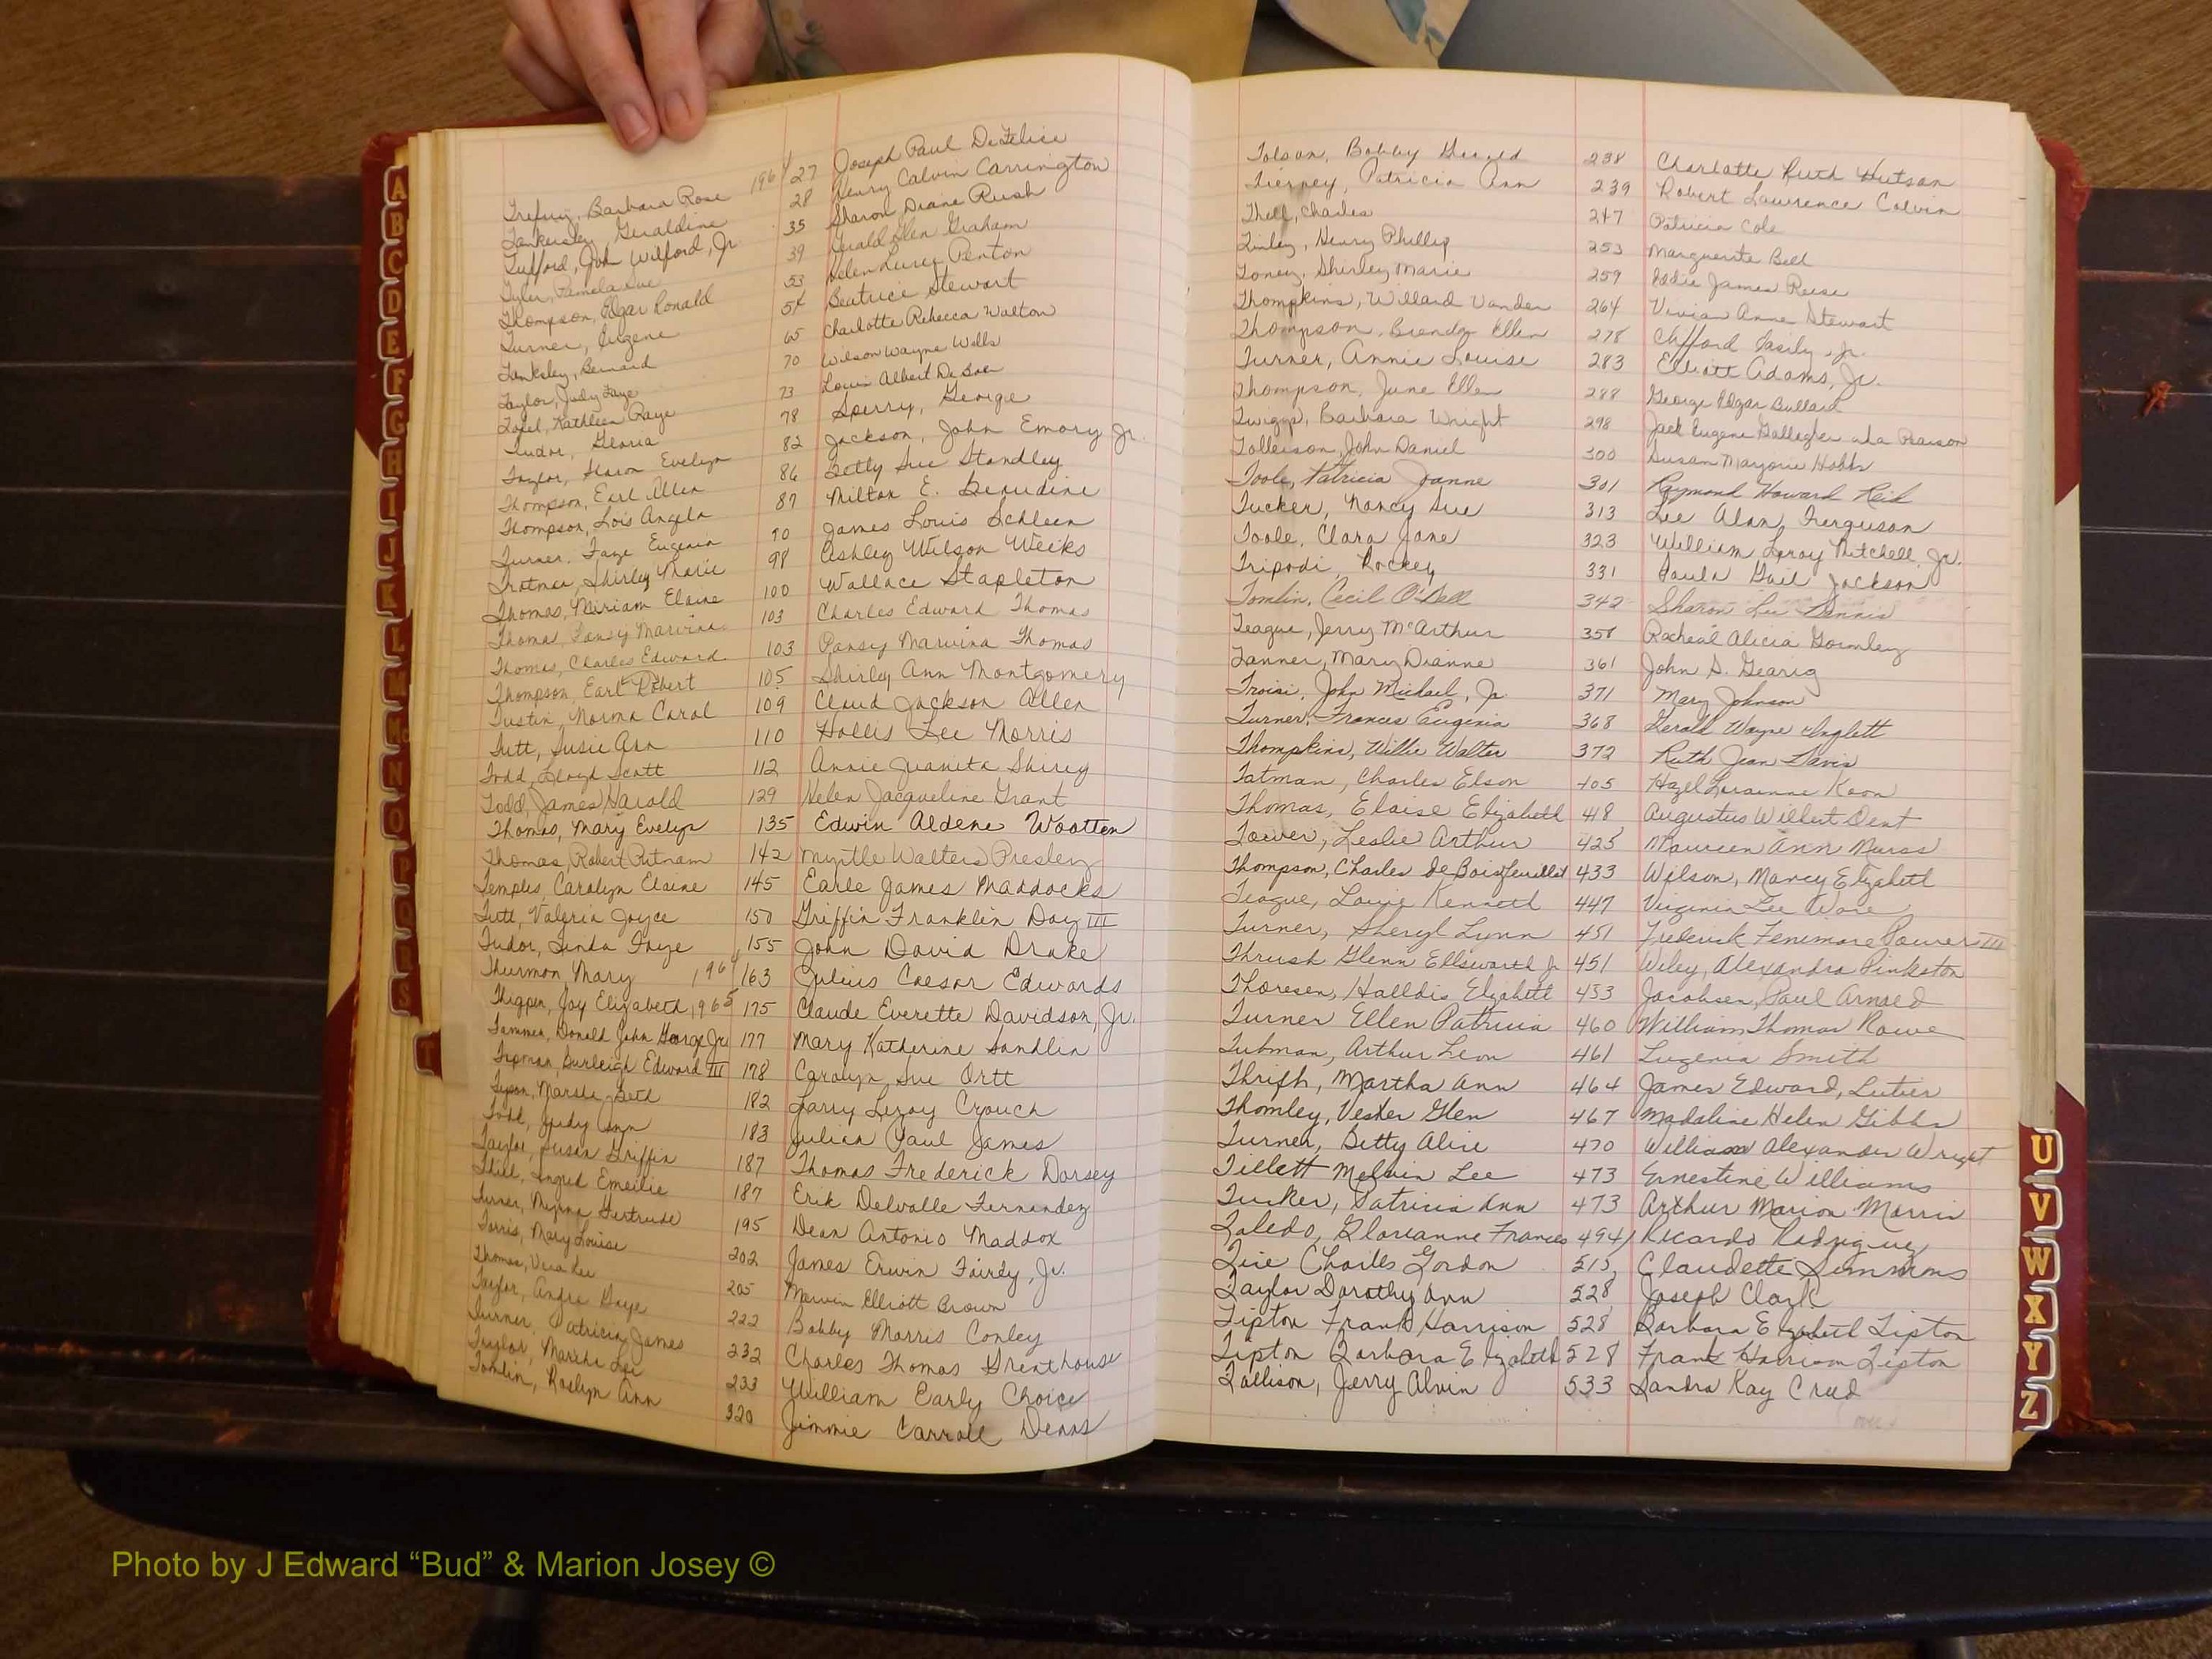 A
B
C
D
E
F
G
H
I
J
K
L
M
Mc
N
O
P
Q
R
S
T
Barbara Rose 196 27 Joseph Paul DeFelice
Tankersley, Geraldine 28 Henry Calvin Carrington
Tufford, John Wilford, Jr. 35 Sharon Diane Rush
Tyler, Pamela Sue 39 Gerald Glen Graham
Thompson, Edgar Ronald 53 Helen Penton
Turner, Eugene 54 Beatrice Stewart
Tanksley, Bernard 65 Charlotte Rebecca Walton
Taylor, Judy Faye 70 Wilson Wayne Wells
Kathleen Raye 73 Louis Albert
Tudor, Gloria 78 Sperry, George
Taylor, Evelyn 82 Jackson, John Emory Jr.
Thompson, Earl Allen 86 Betty Sue Standley
Thompson, Lois Angela 87 Milton E. Beaudine
Turner, Faye Eugenia 90 James Louis
Shirley Marie 98 Ashley Wilson Weeks
Thomas, Miriam Elaine 100 Wallace Stapleton
Thomas Pansy Marvina 103 Charles Edward Thomas
Thomas, Charles Edward 103 Pansy Marvina Thomas
Thompson Earl Robert 105 Shirley Ann Montgomery
Tustin, Norma Carol 109 Claud Jackson Allen
Tutt, Susie Ann 110 Hollis Lee Norris
Todd, Lloyd Scott 112 Annie Juanita Shirey
Todd, James Harold 129 Helen Jacqueline Grant
Thomas, Mary Evelyn 135 Edwin Aldene Wootten
Thomas, Robert Putnam 142 Myrtle Walters Presley
Temples, Carolyn Elaine 145 Earle James Maddocks
Tutt, Valeria Joyce 150 Griffin Franklin Day III
Tudor, Linda Faye 155 John David Drake
Thurmon Mary 1964 163 Julius Caesar Edwards
Thigpen, Joy Elizabeth, 1965 175 Claude Everette Davidson, Jr.
Tammen, Donald John George Jr 177 Mary Katherine Sandlin
Burleigh Edward III 178 Carolyn Sue Ortt
Marsha Beth 182 Larry Leroy Crouch
Todd, Judy Ann 183 Julian Paul James
Taylor, Susan Griffin 187 Thomas Frederick Dorsey
Thiel, Ingrid Emeilie 187 Erik Delvalle Fernandez
Turner, Gertrude 195 Dean Antonio Maddox
Torris, Mary Louise 202 James Erwin Fairdy, Jr.
Thomas, Vera Lee 205 Marvin Elliott Brown
Taylor, Angie Daye 222 Bobby Morris Conley
Turner, Patricia James 232 Charles Thomas Grenthouse
Taylor, Marsha Lee 233 William Early Choice
Tomlin, Roslyn Ann 320 Jimmie Carroll Deans
Tolson, Bobby 238 Charlotte Ruth Hutson
Tierney, Patricia Ann 239 Robert Lawrence Colvin
Thill, Charles 247 Patricia Cole
Tinley, Henry Phillip 253 Marguerite Bell
Toney, Shirley Marie 259 Eddie James Reese
Thompkins, Willard Vander 264 Vivian Anne Stewart
Thompson, Brenda Ellen 278 Clifford Jr.
Turner, Annie Louise 283 Elliott Adams, Jr.
Thompson, June Ellen 288 George Edgar Bullard
Twiggs, Barbara Wright 298 Jack Eugene Gallagher aka Pearson
Tollerson, John Daniel 300 Susan Marjorie Hobbs
Toole, Patricia Joanne 301 Raymond Howard Reid
Tucker, Nancy Sue 313 Lee Alan Ferguson
Toole, Clara Jane 323 William Leroy Mitchell, Jr.
Tripodi, Rockey 331 Paula Gail Jackson
Tomlin, Cecil O'Dell 342 Sharon Lee Dennis
Teague, Jerry McArthur 358 Racheal Alicia Gormley
Tanner, Mary Dianne 361 John S. Gearig
Troisi, John Michael, Jr. 371 Mary Johnson
Turner, Frances Eugenia 368 Gerald Wayne Inglett
Thompkins, Willie Walter 372 Ruth Jean Davis
Tatman, Charles Elson 405 Hazel Koon
Thomas, Eloise Elizabeth 418 Augustus Willert Dent
Tower, Leslie Arthur 425 Maureen Ann
Thompson, Charles deBoisfeuillet 433 Wilson, Marcy Elizabeth
Teague, Louie Kenneth 447 Virginia Lee Ware
Turner, Sheryl Lynn 451 Frederick Fenimore Power III
Thrush Glenn Ellsworth Jr 451 Wiley, Alexandra Pinkston
Thoresen, Halldis Elizabeth 453 Jacobsen, Paul Arnold
Turner Ellen Patricia 460 William Thomas Rowe
Tubman, Arthur Leon 461 Eugenia Smith
Thrift, Martha Ann 464 James Edward, Luter
Thomley, Vester Glen 467 Madaline Helen Gibbs
Turner, Betty Alice 470 William Alexander Wright
Tillett Melvin Lee 473 Ernestine Williams
Tucker, Patricia Ann 473 Arthur Marion Morris
Toledo, Glorianne Frances 494 Ricardo Rodriguez
Tice Charles Gordon 515 Claudette Simmons
Taylor Dorothy Ann 528 Joseph Clark
Tipton Frank Harrison 528 Barbara Elizabeth Tipton
Tipton Barbara Elizabeth 528 Frank Harrison Tipton
Tallison, Jerry Alvin 533 Sandra Kay Creed
U
V
W
X
Y
Z
Photo by J Edward “Bud” & Marion Josey ©